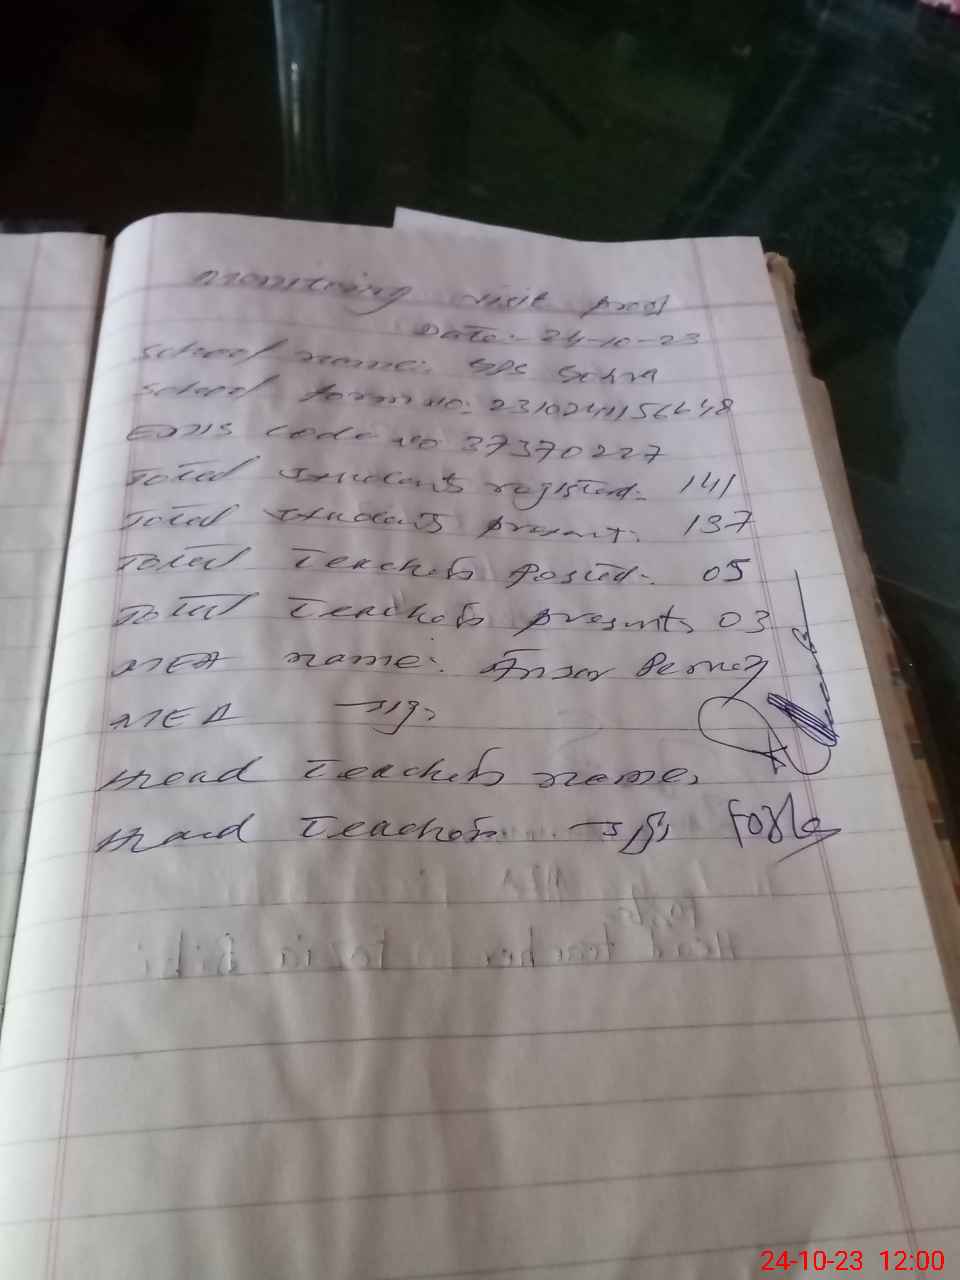 Monitring visit proof
Date:- 24-10-23
School name: GPS
School form no:
EMIS Code no 37370227
Total Students registed:- 141
Total Students present:- 137
Total Teachers Posted:- 05
Total Teachers present, 03
MEA name: Ansar Pervez
MEA sig,
Head Teachers name,
Head Teachers sig,
24-10-23 12:00